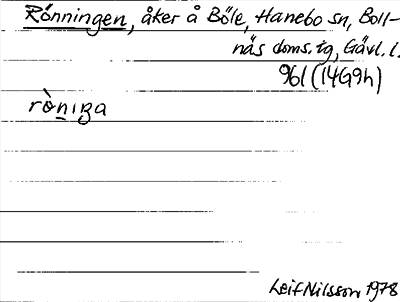 Rönningen, åker å Böle, Hanebo sn, Boll-
näs doms. tg, Gävl. l.
961 (14G9h)
rὸnıŋa
Leif Nilsson 1978